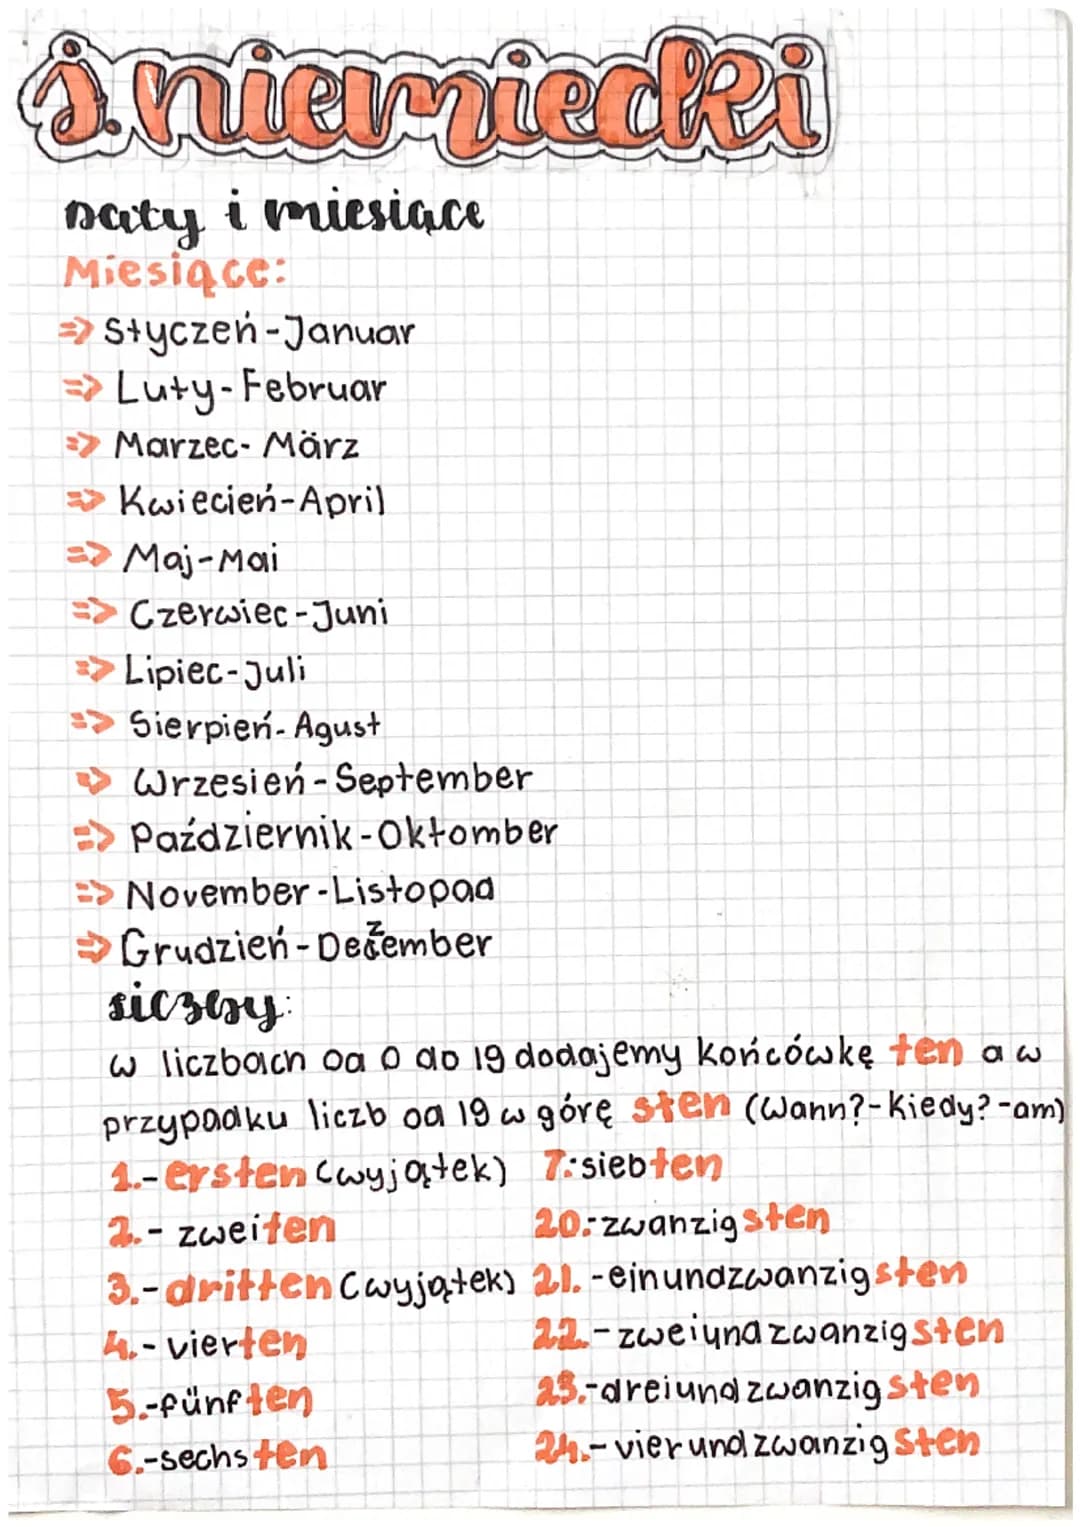 j.niemiecki
Daty i miesiące
Miesiące:
=> Styczeń-Januar
=> Luty-Februar
=> Marzec- März
=> Kwiecień-April
=> Maj-Mai
=> Czerwiec-Juni
=> Lipiec-Juli
=> Sierpień-Agust
=> Wrzesień-September
=> Październik-Oktomber
=> November-Listopad
=> Grudzień-Dezember
liczby:
w liczbach od 0 do 19 dodajemy końcówkę ten a w
przypadku liczb od 19 w górę sten (Wann?-Kiedy?-am)
1.-ersten (wyjątek) 7.-siebten
2.- zweiten 20.-zwanzigsten
3.-dritten (wyjątek) 21.-einundzwanzigsten
4.-vierten 22.-zweiundzwanzigsten
5.-fünften 23.-dreiundzwanzigsten
6.-sechsten 24.-vierundzwanzigsten